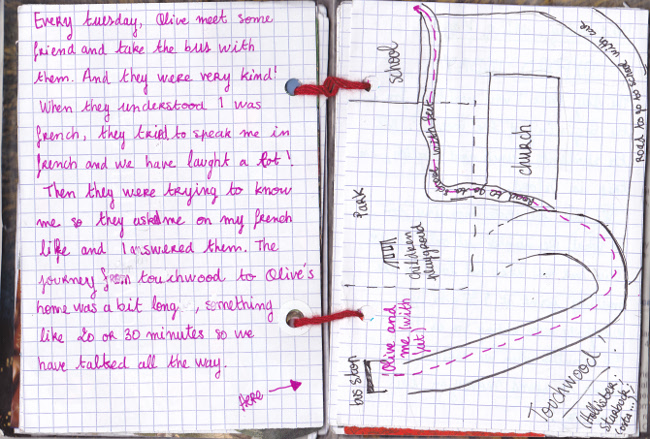 Every tuesday, Olive meet some
friend and take the bus with
them. And they were very kind!
When they understood I was
french, they tried to speak me in
french and we have laught a lot!
Then they were trying to know
me so they asked me on my french
life and I answered them. The
journey from touchwood to Olive's
home was a bit long, something
like 20 or 30 minutes so we
have talked all the way.
HERE
school
Road to go to school with feet
church
Road to go to school with car
PARK
children
playground
Olive and
me (with
feet)
bus stop
Touchwood!
(Hollister;
starbuck;
costa...)